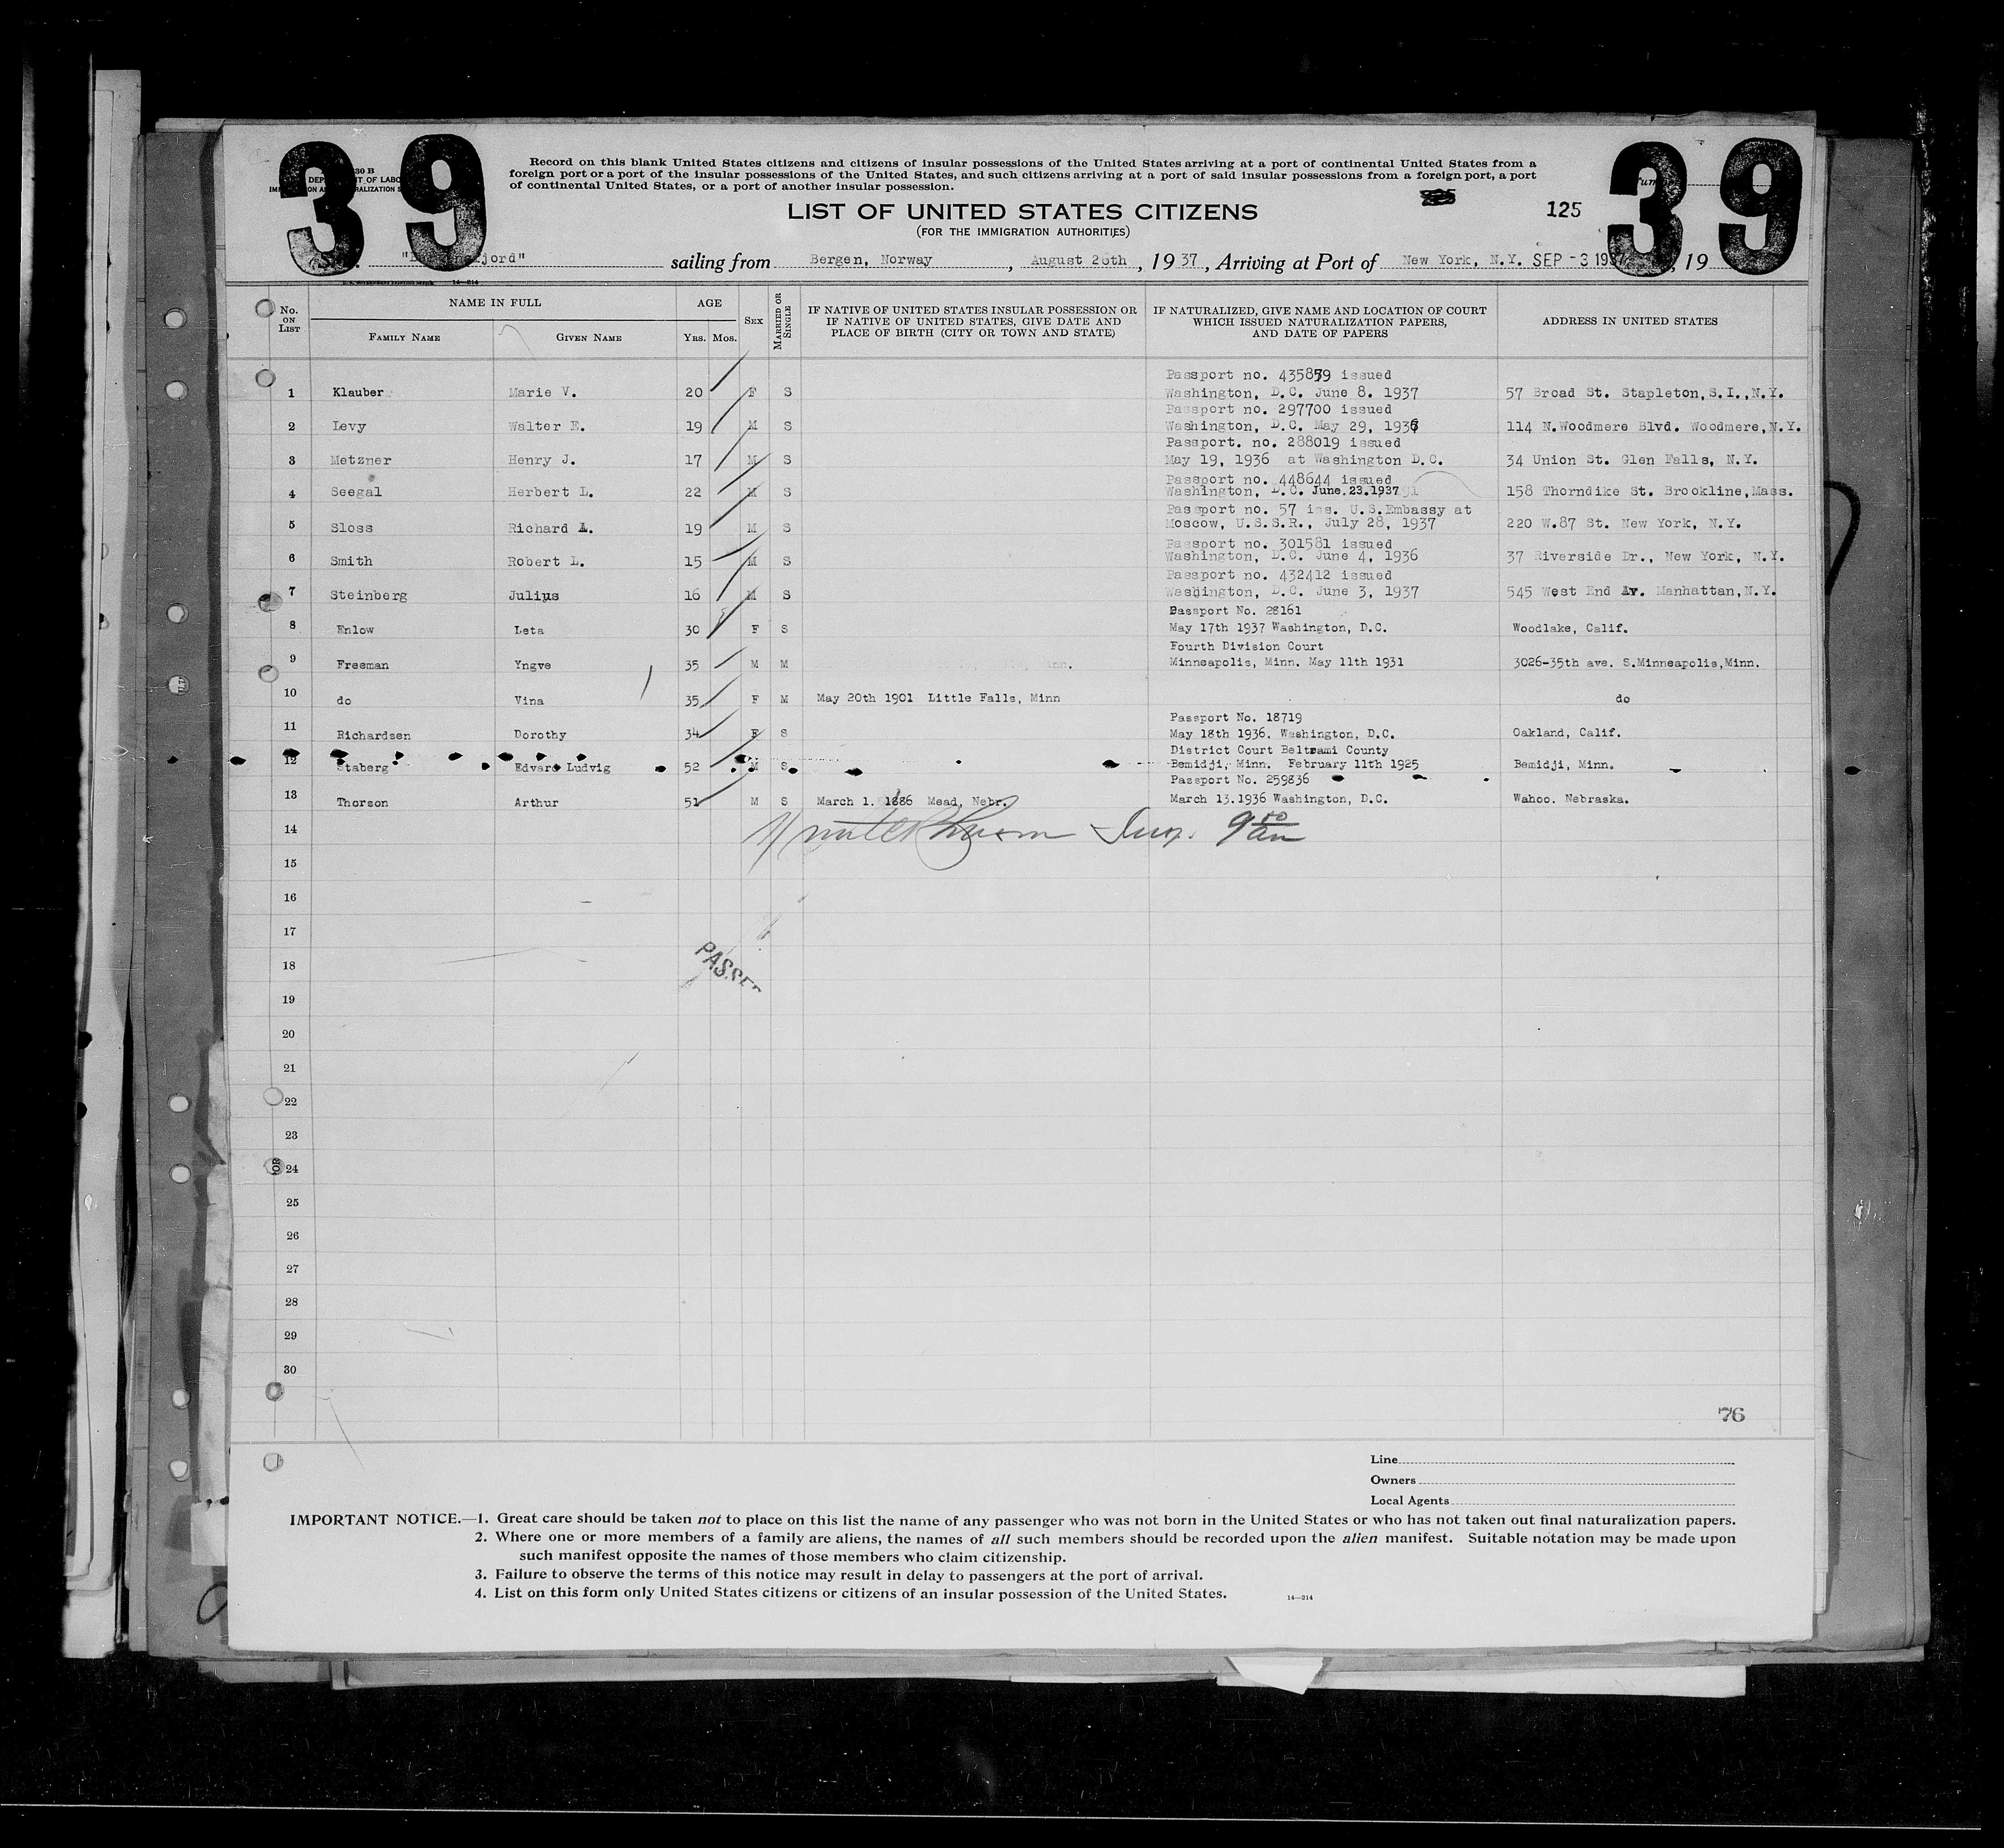 39
39
30 B
Record on this blank United States citizens and citizens of insular possessions of the United States arriving at a port of continental United States from a
foreign port or a port of the insular possessions of the United States, and such citizens arriving at a port of said insular possessions from a foreign port, a port
of continental United States, or a port of another insular possession.
125
LIST OF UNITED STATES CITIZENS
(FOR THE IMMIGRATION AUTHORITIES)
sailing from Bergen, Norway, August 26th, 1937, Arriving at Port of New York, N.Y. SEP -3 1937, 19
14—214
No. ON LIST NAME IN FULL AGE SEX MARRIED OR SINGLE IF NATIVE OF UNITED STATES INSULAR POSSESSION OR IF NATIVE OF UNITED STATES, GIVE DATE AND PLACE OF BIRTH (CITY OR TOWN AND STATE) IF NATURALIZED, GIVE NAME AND LOCATION OF COURT WHICH ISSUED NATURALIZATION PAPERS, AND DATE OF PAPERS ADDRESS IN UNITED STATES
FAMILY NAME GIVEN NAME YRS. MOS.
Passport no. 435879 issued
1 Klauber Marie V. 20 F S Washington, D.C. June 8. 1937 57 Broad St. Stapleton,S.I.,N.Y.
Passport no. 297700 issued
2 Levy Walter E. 19 M S Washington, D.C. May 29, 1936 114 N.Woodmere Blvd. Woodmere,N.Y.
Passport. no. 288019 issued
3 Metzner Henry J. 17 M S May 19, 1936 at Washington D.C. 34 Union St. Glen Falls, N.Y.
Passport no. 448644 issued
4 Seegal Herbert L. 22 M S Washington, D.C. June.23.1937 158 Thorndike St. Brookline,Mass.
Passport no. 57 iss. U.S.Embassy at
5 Sloss Richard A. 19 M S Moscow, U.S.S.R., July 28, 1937 220 W.87 St. New York, N.Y.
Passport no. 301581 issued
6 Smith Robert L. 15 M S Washington, D.C. June 4, 1936 37 Riverside Dr., New York, N.Y.
Passport no. 432412 issued
7 Steinberg Julius 16 M S Washington, D.C. June 3, 1937 545 West End Av. Manhattan,N.Y.
Passport No. 28161
8 Enlow Leta 30 F S May 17th 1937 Washington, D.C. Woodlake, Calif.
Fourth Division Court
9 Freeman Yngve 35 M M Minneapolis, Minn. May 11th 1931 3026-35th ave. S.Minneapolis,Minn.
10 do Vina 35 F M May 20th 1901 Little Falls, Minn do
Passport No. 18719
11 Richardsen Dorothy 34 F S May 18th 1936. Washington, D.C. Oakland, Calif.
District Court Beltrami County
12 Staberg Edvard Ludvig 52 M S Bemidji, Minn. February 11th 1925 Bemidji, Minn.
Passport No. 259836
13 Thorson Arthur 51 M S March 1. 1886 Mead, Nebr. March 13.1936 Washington, D.C. Wahoo. Nebraska.
14
15
16
17
PASSED
18
19
20
21
22
23
24
25
26
27
28
29
30
76
Line
Owners
Local Agents
IMPORTANT NOTICE.—1. Great care should be taken not to place on this list the name of any passenger who was not born in the United States or who has not taken out final naturalization papers.
2. Where one or more members of a family are aliens, the names of all such members should be recorded upon the alien manifest. Suitable notation may be made upon
such manifest opposite the names of those members who claim citizenship.
3. Failure to observe the terms of this notice may result in delay to passengers at the port of arrival.
4. List on this form only United States citizens or citizens of an insular possession of the United States.
14—214